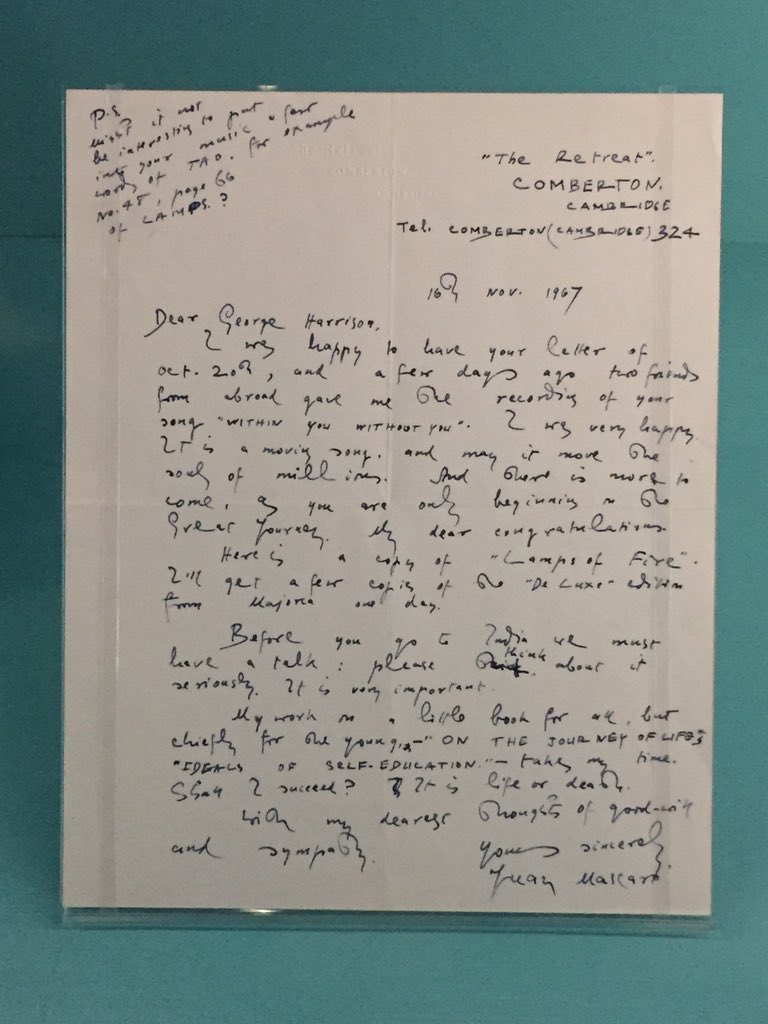 P.S.
might it not
be interesting to put
into your music a few
words of TAO. for example
No. 48, page 66
of LAMPS?
"The Retreat".
COMBERTON.
CAMBRIDGE
Tel. COMBERTON (CAMBRIDGE) 324
16th Nov. 1967
Dear George Harrison,
I was happy to have your letter of
Oct. 20th, and a few days ago two friends
from abroad gave me the recording of your
song "WITHIN YOU WITHOUT YOU". I was very happy.
It is a moving song, and may it move the
souls of millions. And there is more to
come, as you are only beginning on the
Great Journey. My dear congratulations
Here is a copy of "Lamps of Fire".
I'll get a few copies of the "De Luxe" edition
from Majorca one day.
Before you go to India we must
have a talk: please think about it
seriously. It is very important.
My work on a little book for all, but
chiefly for the young, – "ON THE JOURNEY OF LIFE"
"IDEALS OF SELF-EDUCATION." – takes my time.
Shall I succeed? It is life or death.
With my dearest thoughts of good-will
and sympathy.
Yours sincerely,
Juan Mascaró